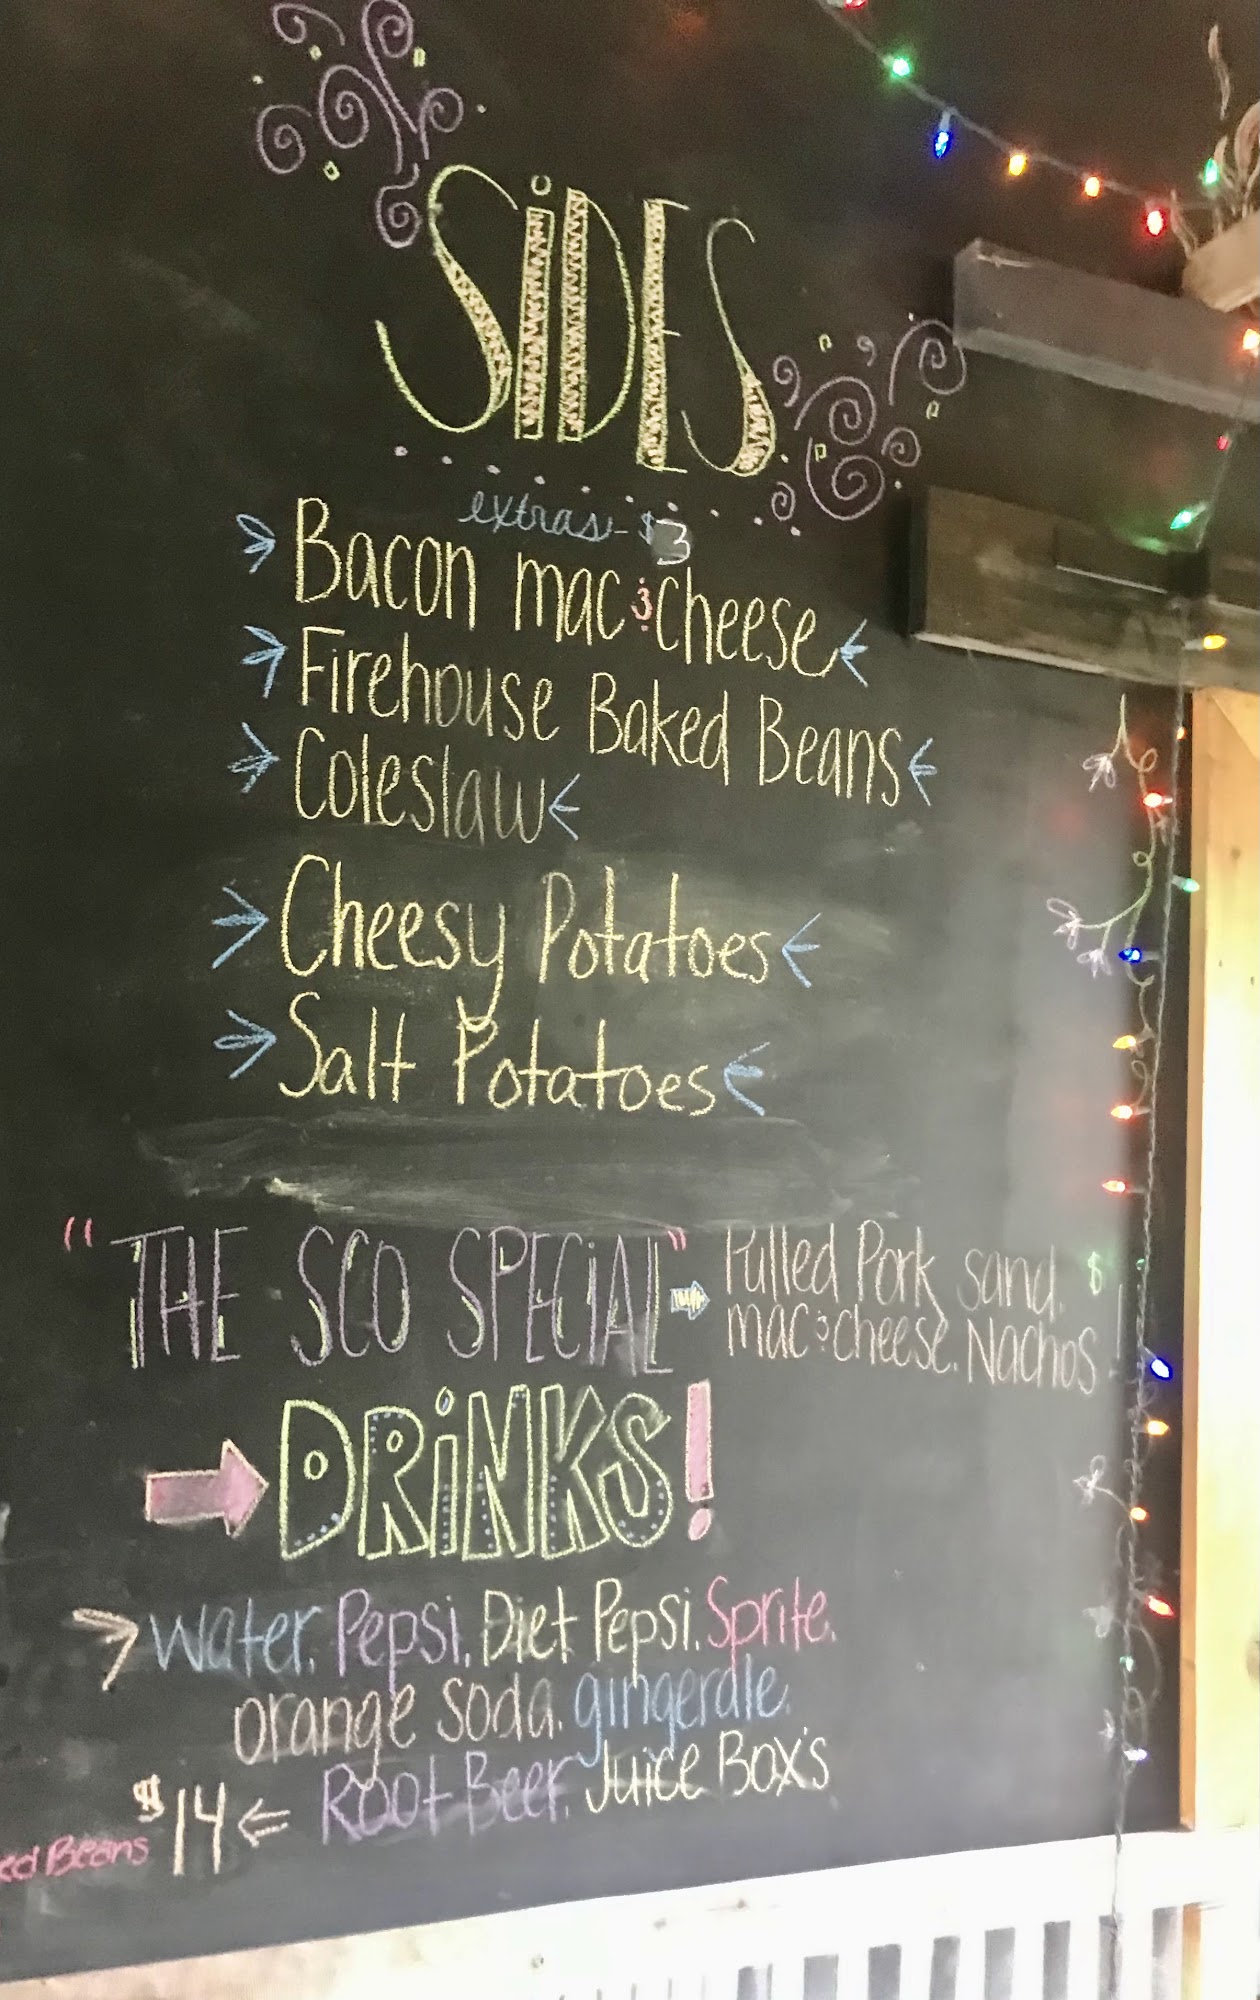 SiDES
extras - $3
Bacon mac & cheese
Firehouse Baked Beans
Coleslaw
Cheesy Potatoes
Salt Potatoes
"THE SCO SPECiAL" Pulled Pork sand. $
mac & cheese. Nachos
DRiNKS!
water. Pepsi. Diet Pepsi. Sprite.
orange soda. gingerale.
Root Beer. Juice Box's
$14
Beans